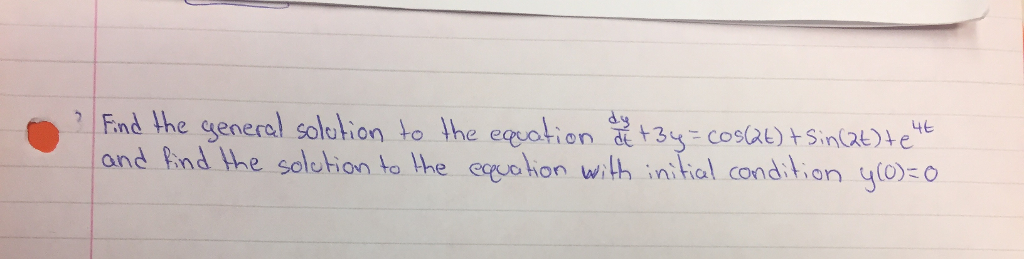 ? Find the general solution to the equation dy/dt + 3y = cos(2t) + sin(2t) + e^4t
and find the solution to the equation with initial condition y(0)=0